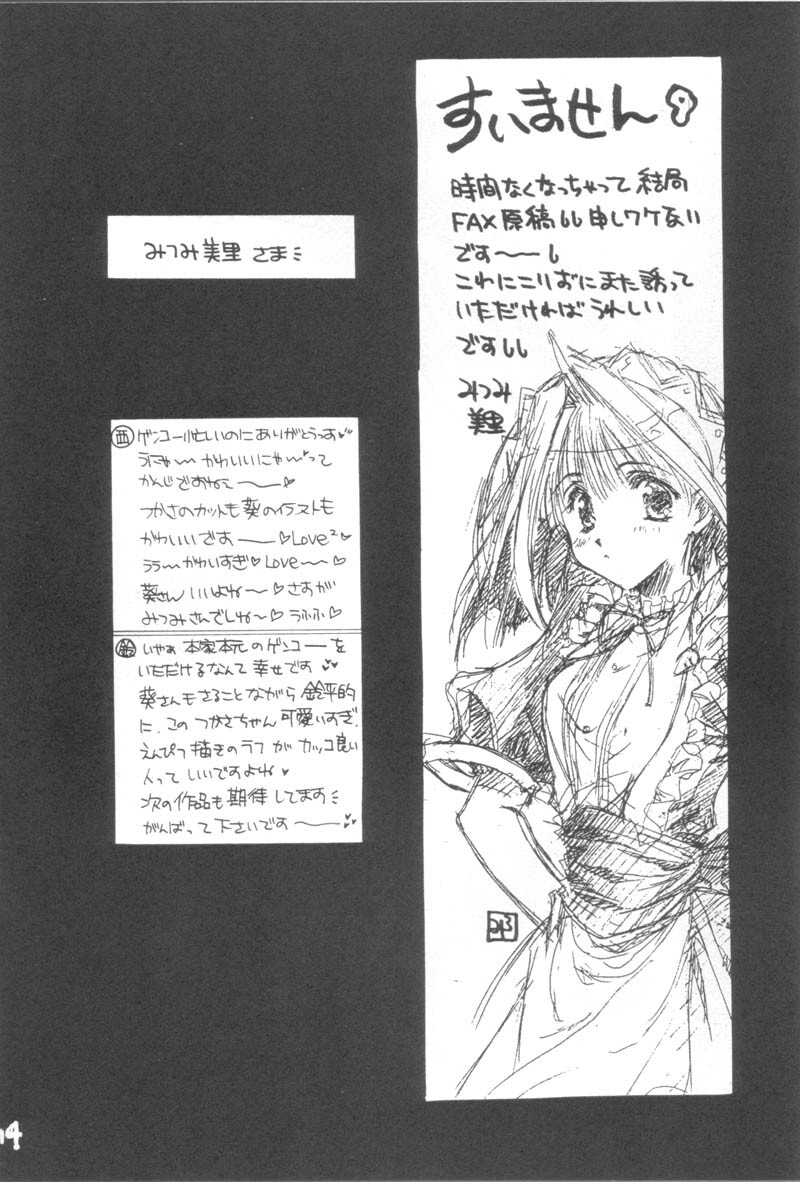 すいません
時間なくなっちゃって結局
FAX原稿 申しワケない
です〜〜
これにこりずにまた誘って
いただければうれしい
です
みつみ
美里
みつみ美里 さま
西 ゲンコー忙しいのにありがとうっす♡
うにゃ〜〜かわいいにゃ〜って
かんじですねー〜〜☆
つかさのカットも葵のイラストも
かわいいです〜〜♡Love²♡
うう〜かわいすぎ♡Love〜♡
葵さんいいよね〜♡さすが
みつみさんでしね〜♡うふふ♡
鈴 いやぁ 本家本元のゲンコーを
いただけるなんて幸せです♡♡
葵さんもさることながら 鈴平的
に、この つかさちゃん可愛いすぎ。
えんぴつ描きのラフが カッコ良い
人って いいですよね♡
次の作品も期待してます
がんばって下さいです〜〜♡♡
14